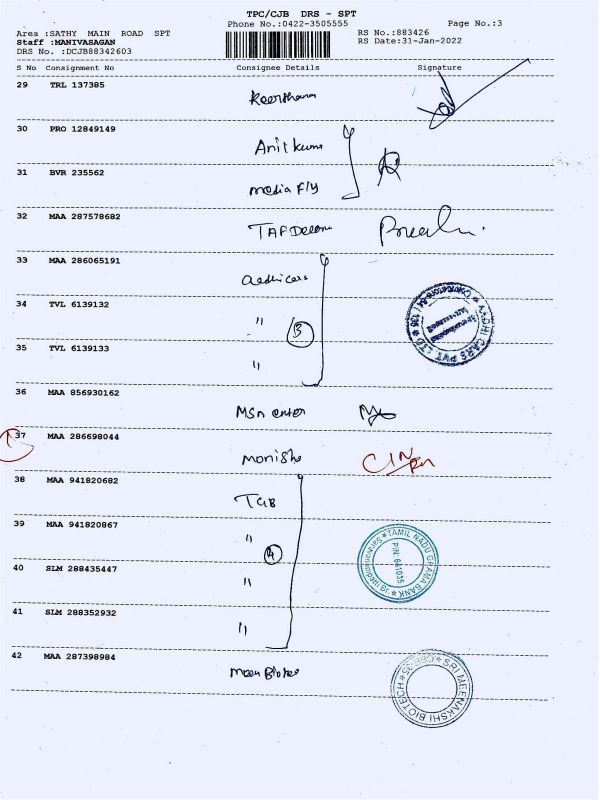 TPC/CJB DRS - SPT
Phone No.:0422-3505555
Page No.:3
Area :SATHY MAIN ROAD SPT
RS No.:883426
Staff :MANIVASAGAN
RS Date:31-Jan-2022
DRS No. :DCJB88342603
S No Consignment No Consignee Details Signature
29 TRL 137385
Keerthana
30 PRO 12849149
Anil kuma
31 BVR 235562
media fly
32 MAA 287578682
33 MAA 286065191
Aadhi cars
34 TVL 6139132
" 3
35 TVL 6139133
"
36 MAA 856930162
MSn enter
37 MAA 286698044
Monisha
38 MAA 941820682
TGB
39 MAA 941820867
" 4
40 SLM 288435447
"
41 SLM 288352932
"
42 MAA 287398984
Meen Biotec
AADHI CARS PVT LTD
TAMIL NADU GRAMA BANK
Saravanampatti Br.
PIN: 641035
SRI MEENAKSHI BIOTECH
CBE-35